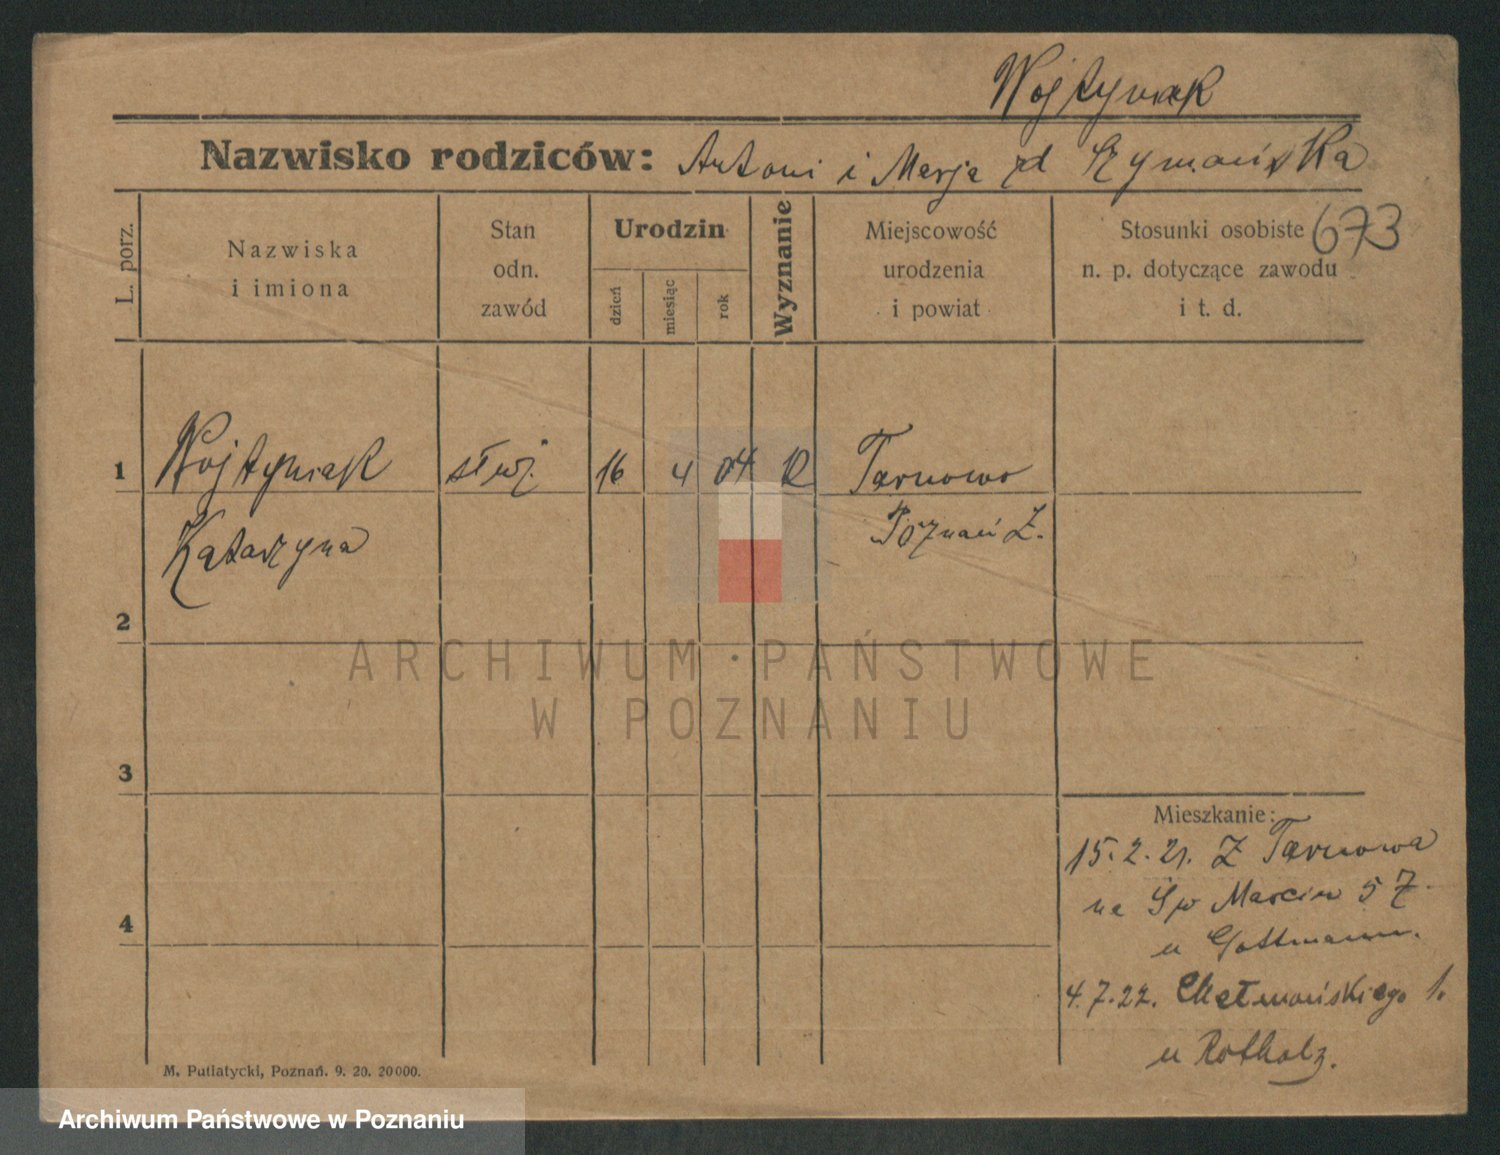 Wojtyniak
Nazwisko rodziców: Antoni i Marja zd Szymańska
L. porz.
Nazwiska
i imiona
Stan
odn.
zawód
Urodzin
dzień
miesiąc
rok
Wyznanie
Miejscowość
urodzenia
i powiat
Stosunki osobiste
n. p. dotyczące zawodu
i t. d.
673
1 Wojtyniak służ. 16 4 04 R Tarnowo
Katarzyna Poznań Z.
2
ARCHIWUM PAŃSTWOWE
W POZNANIU
3
Mieszkanie:
15.2.21. Z Tarnowa
na Św Marcin 57.
4
u Gottmann.
4.7.22. Chełmońskiego 1.
u Rotholz.
M. Putiatycki, Poznań. 9. 20. 20000.
Archiwum Państwowe w Poznaniu